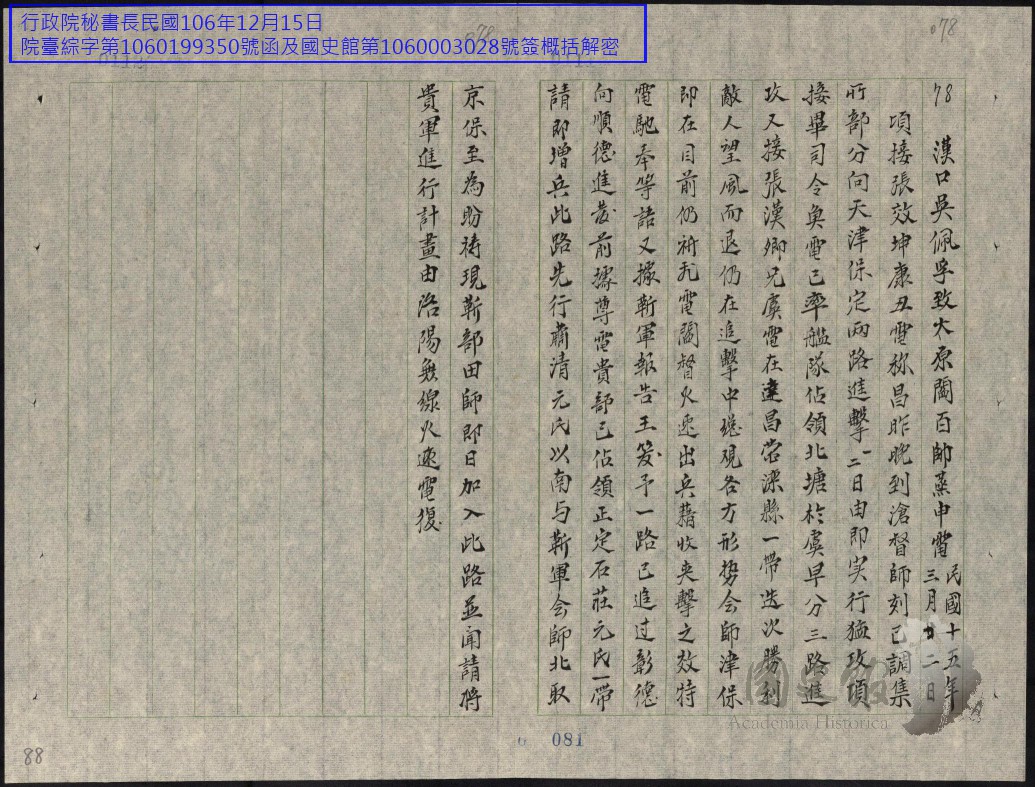 行政院秘書長民國106年12月15日
院臺綜字第1060199350號函及國史館第1060003028號簽概括解密
078
078
78 漢口吳佩孚致太原閻百帥蒸申電 民國十五年三月廿二日
頃接張效坤康丑電称昌昨晚到滄督師刻已調集
所部分向天津保定兩路進擊一二日内即实行猛攻頃
接畢司令魚電已率艦隊佔領北塘於虞早分三路進
攻又接張漢卿兄虞電在建昌营灤縣一帶迭次勝利
敵人望風而退仍在追擊中環观各方形势会師津保
即在目前仍祈丸電閻督火速出兵藉收夾擊之效特
電馳奉等語又據靳軍報告王爲予一路已追过彰德
向順德進發前據尊電貴部已佔領正定石莊元氏一帶
請即增兵此路先行肅清元氏以南与靳軍会師北取
京保至為盼禱現靳部田師即日加入此路並闻請將
貴軍進行計畫由洛陽無線火速電復
國史館
Academia Historica
6 081
88